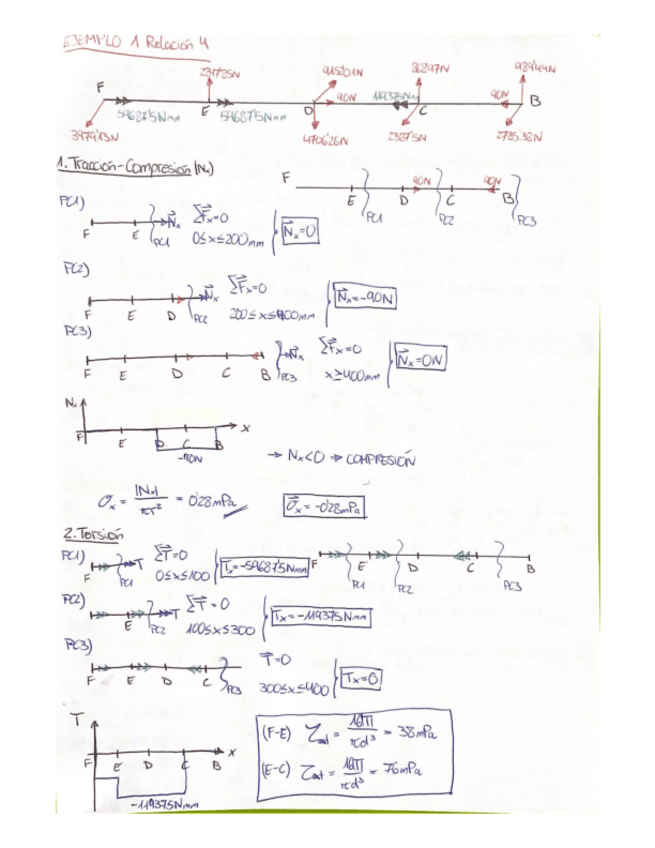 EJEMPLO 1 Relación 4
2347'25N 915'01N 268'97N 929'44N
F 90N 119375Nmm 90N B
59687'5Nmm E 59687'5Nmm D C
3979'13N 4706'26N 2387'5N 2785'38N
1. Tracción-Compresión (Nx)
F 90N 90N
E D C B
PC1 PC2 PC3
PC1)
F E PC1 Nx ΣFx=0
0≤x≤200mm Nx=0
PC2)
F E D PC2 Nx ΣFx=0
200≤x≤400mm Nx=-90N
PC3)
F E D C B PC3 Nx ΣFx=0
x≥400mm Nx=0N
Nx
F E D C B x
-90N → Nx<0 → COMPRESIÓN
σx = |Nx| / πr² = 0'28mPa σx=-0'28mPa
2. Torsión
PC1) F PC1 T ΣT=0
0≤x≤100 Tx=-59687'5Nmm
F E D C B
PC1 PC2 PC3
PC2) E PC2 T ΣT=0
100≤x≤300 Tx=-119375Nmm
PC3)
F E D C PC3 T=0
300≤x≤400 Tx=0
T
F E D C B x
-119375Nmm
(F-E) = 16|T| / πd³ = 38mPa
(E-C) = 16|T| / πd³ = 76mPa